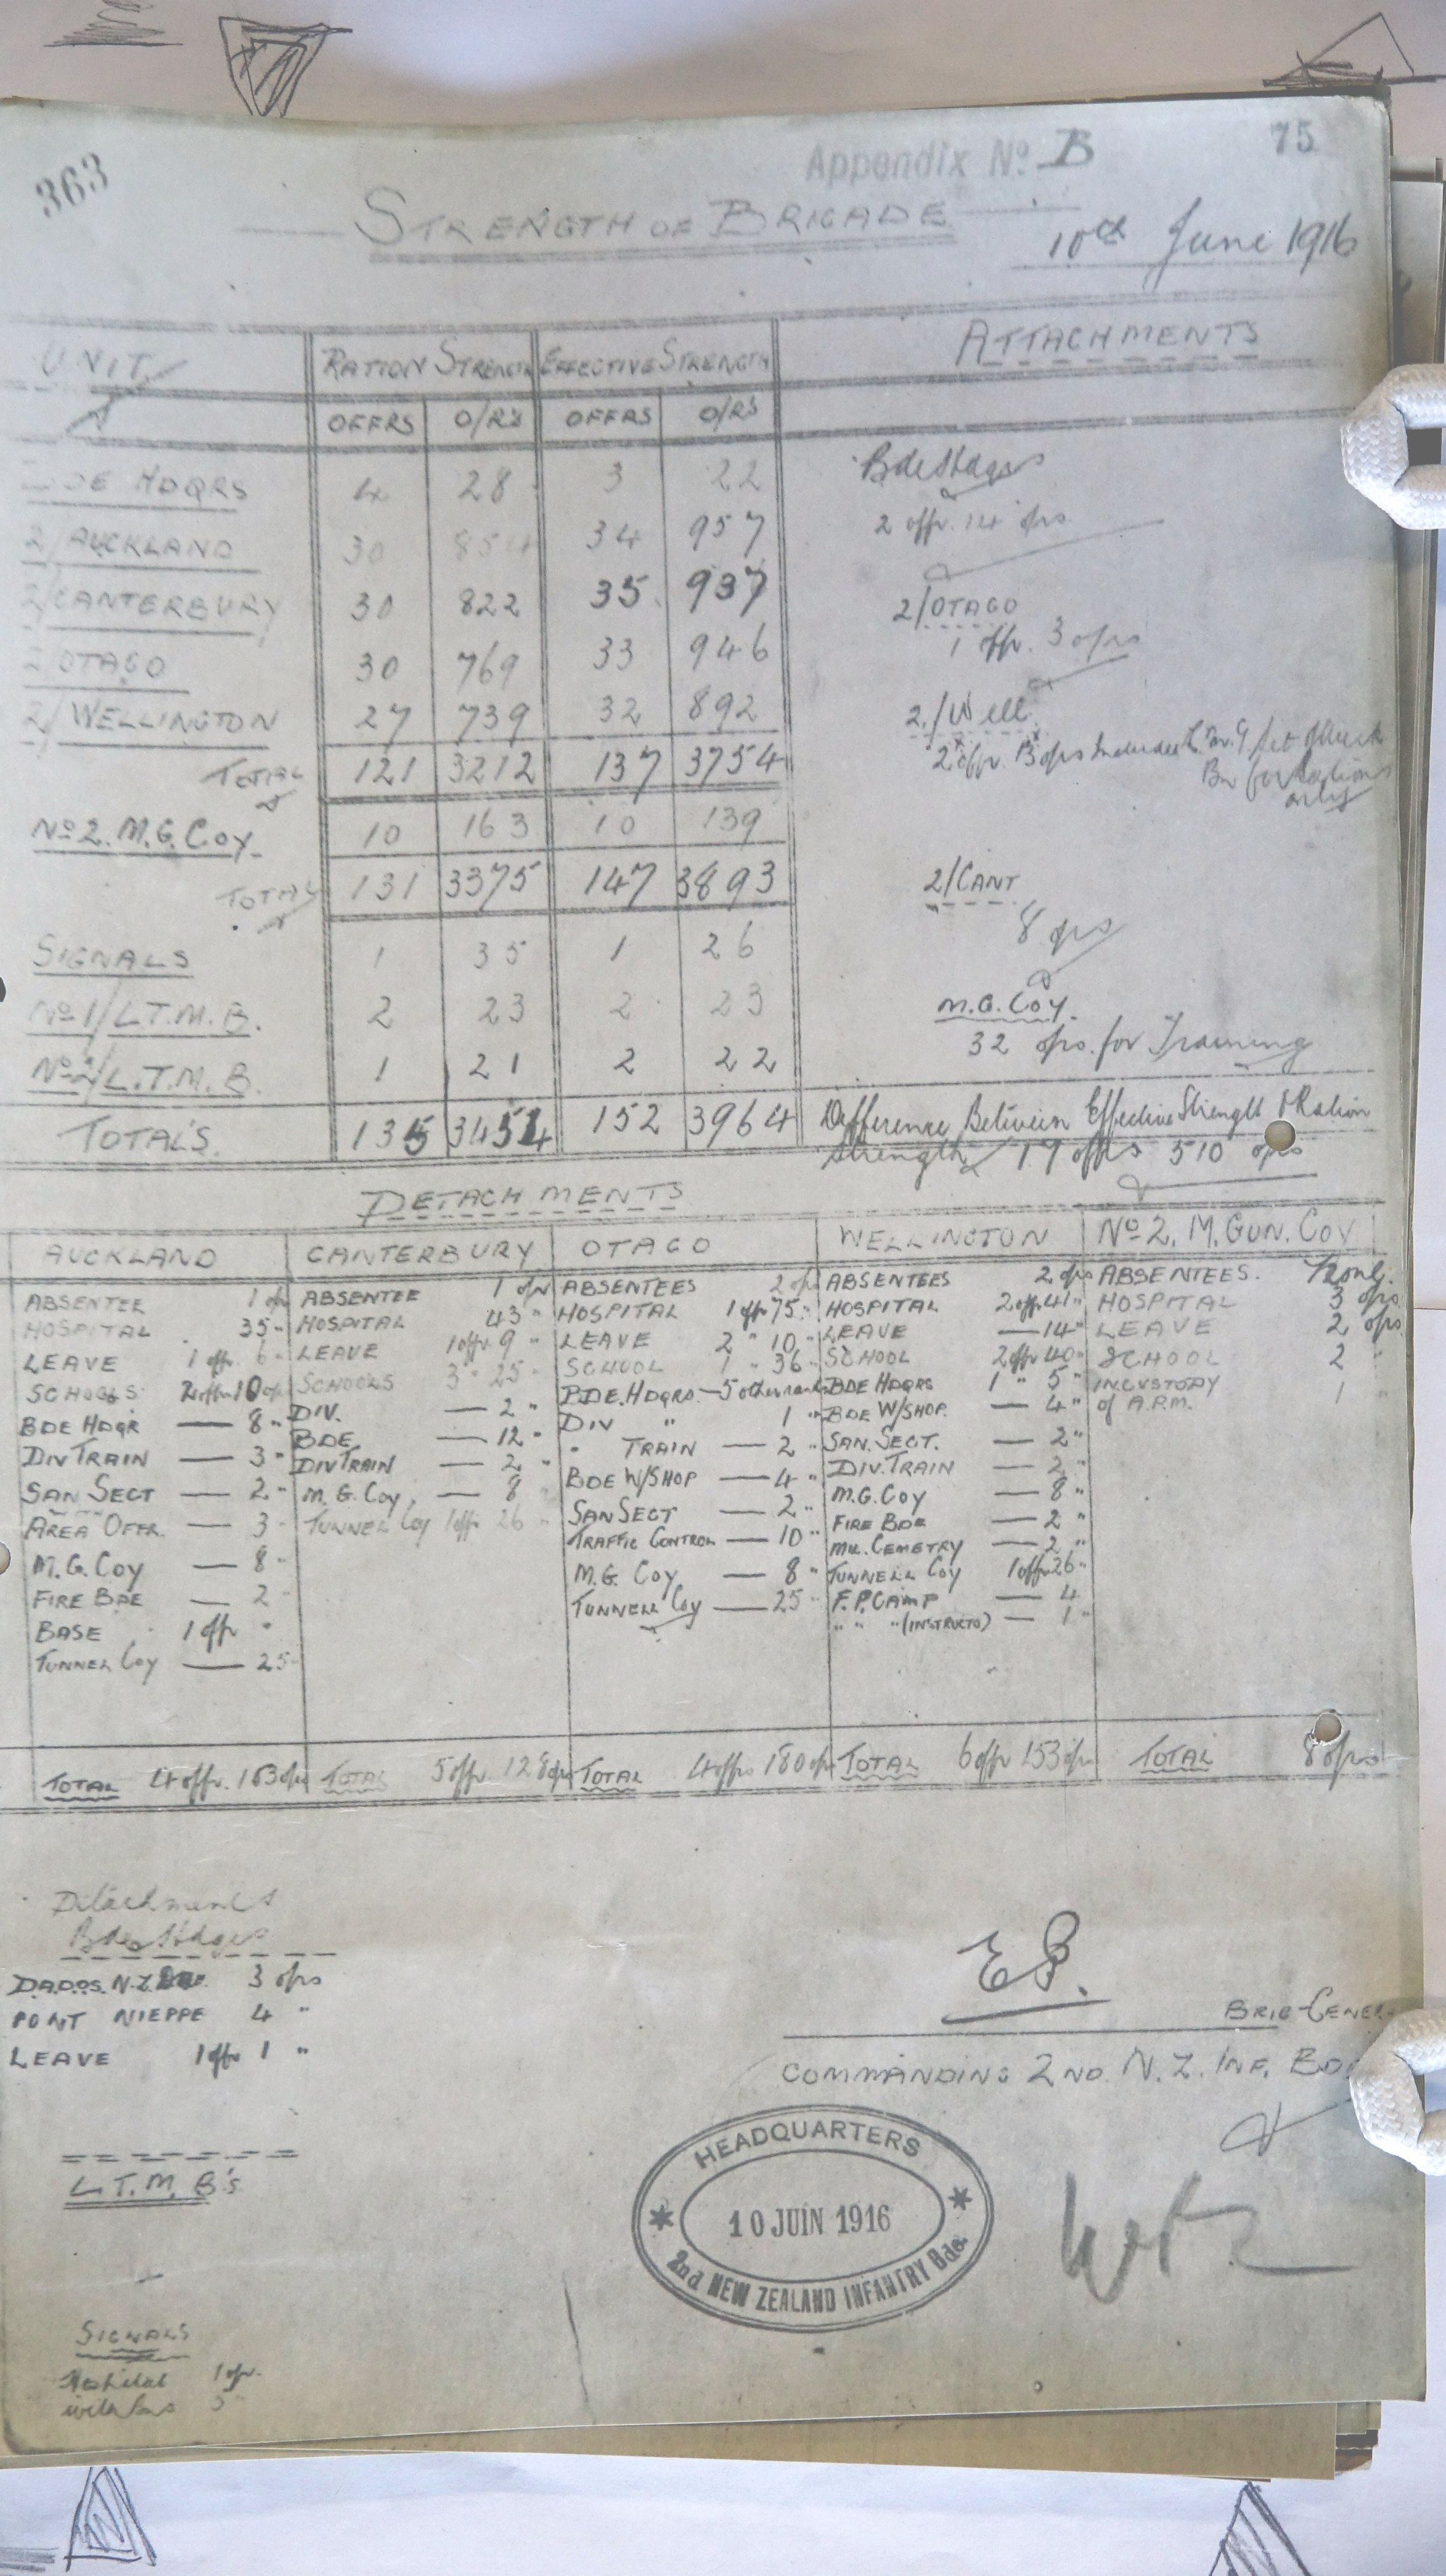 363
Appendix No. B
75
STRENGTH OF BRIGADE
10th June 1916
UNIT RATION STRENGTH EFFECTIVE STRENGTH ATTACHMENTS
OFFRS O/R's OFFRS O/R's
DE HDQRS 4 28 3 22
Bde Hdqrs
2 offr. 14 o/rs
2/AUCKLAND 30 854 34 957
2/CANTERBURY 30 822 35 937
2/OTAGO
1 offr. 3 o/rs
2/OTAGO 30 769 33 946
2/WELLINGTON 27 739 32 892
2/Well.
2 offr. 13 o/rs Includes
Bn for Rations
only
TOTAL 121 3212 137 3754
No 2. M.G. Coy. 10 163 10 139
TOTAL 131 3375 147 3893
2/CANT
8 o/rs
SIGNALS 1 35 1 26
No 1/L.T.M.B. 2 23 2 23
M.G. Coy.
32 o/rs. for Training
No 2/L.T.M.B. 1 21 2 22
TOTAL'S. 135 3454 152 3964
Difference Between Effective Strength & Ration
Strength 17 offrs 510 o/rs
DETACHMENTS
AUCKLAND
ABSENTEE 1 o/r
HOSPITAL 35 "
LEAVE 1 offr. 6 "
SCHOOLS 2 offr 10 o/rs
BDE HDQR — 8 "
DIV TRAIN — 3 "
SAN SECT — 2 "
AREA OFFR. — 3 "
M.G. COY — 8 "
FIRE BDE — 2 "
BASE 1 offr "
TUNNEL Coy — 25 "
TOTAL 4 offr. 103 o/rs
CANTERBURY
ABSENTEE 1 o/r
HOSPITAL 43 "
LEAVE 1 offr. 9 "
SCHOOLS 3 " 25 "
DIV. — 2 "
BDE — 12 "
DIV TRAIN — 2 "
M.G. Coy. — 8 "
TUNNEL Coy 1 offr 26 "
TOTAL 5 offr. 128 o/rs
OTAGO
ABSENTEES 2 o/rs
HOSPITAL 1 offr 75 "
LEAVE 2 " 10 "
SCHOOL 1 " 36 "
BDE. HDQRS — 5 other ranks
DIV " 1 "
" TRAIN — 2 "
BDE W/SHOP — 4 "
SAN SECT — 2 "
TRAFFIC CONTROL — 10 "
M.G. COY — 8 "
TUNNELL Coy — 25 "
TOTAL 4 offrs 180 o/rs
WELLINGTON
ABSENTEES 2 o/rs
HOSPITAL 2 offr 41 "
LEAVE — 14 "
SCHOOL 2 offr 40 "
BDE HDQRS 1 " 5 "
BDE W/SHOP. — 4 "
SAN. SECT. — 2 "
DIV. TRAIN — 2 "
M.G. COY — 8 "
FIRE BDE — 2 "
MIL. CEMETRY — 2 "
TUNNELL COY 1 offr 26 "
F.P. CAMP — 4
" " " (INSTRUCTO) — 1 "
TOTAL 6 offr 153 o/rs
No 2. M. GUN. COY
ABSENTEES.
HOSPITAL 3 o/rs
LEAVE 2 o/rs
SCHOOL 2 "
IN CUSTODY 1 "
of A.P.M.
TOTAL 8 o/rs
Detachments
Bde Hdqrs
D.A.D.O.S. N.Z. 3 o/rs
PONT NIEPPE 4 "
LEAVE 1 offr 1 "
L.T.M.B's
SIGNALS
Hospital 1 o/r.
BRIG-GENER
COMMANDING 2ND. N.Z. INF. BD
HEADQUARTERS
10 JUIN 1916
2nd NEW ZEALAND INFANTRY Bde.